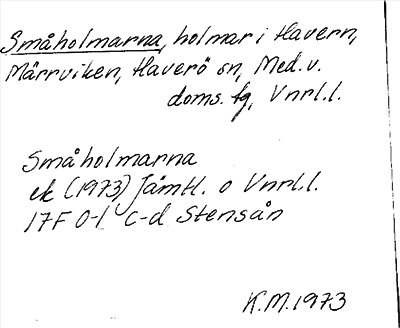 Småholmarna, holmar i Havern,
Märrviken, Haverö sn, Med. v.
doms. fg, Vnrl.l.
Småholmarna
ek (1973) Jämtl. o Vnrl.l.
17F 0-1 c-d Stensån
K.M. 1973